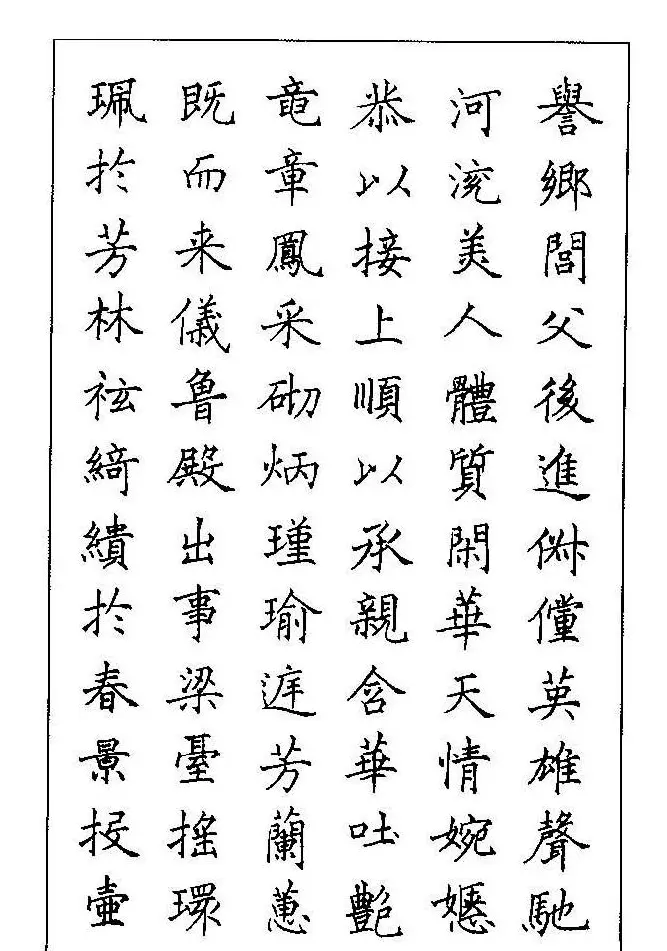 譽鄉閭父後進俶儻英雄聲馳
河渷美人體質閑華天情婉嫕
恭以接上順以承親含華吐艷
竜章鳳采砌炳瑾瑜庭芳蘭蕙
既而来儀魯殿出事梁臺搖環
珮於芳林袨綺繢於春景投壺